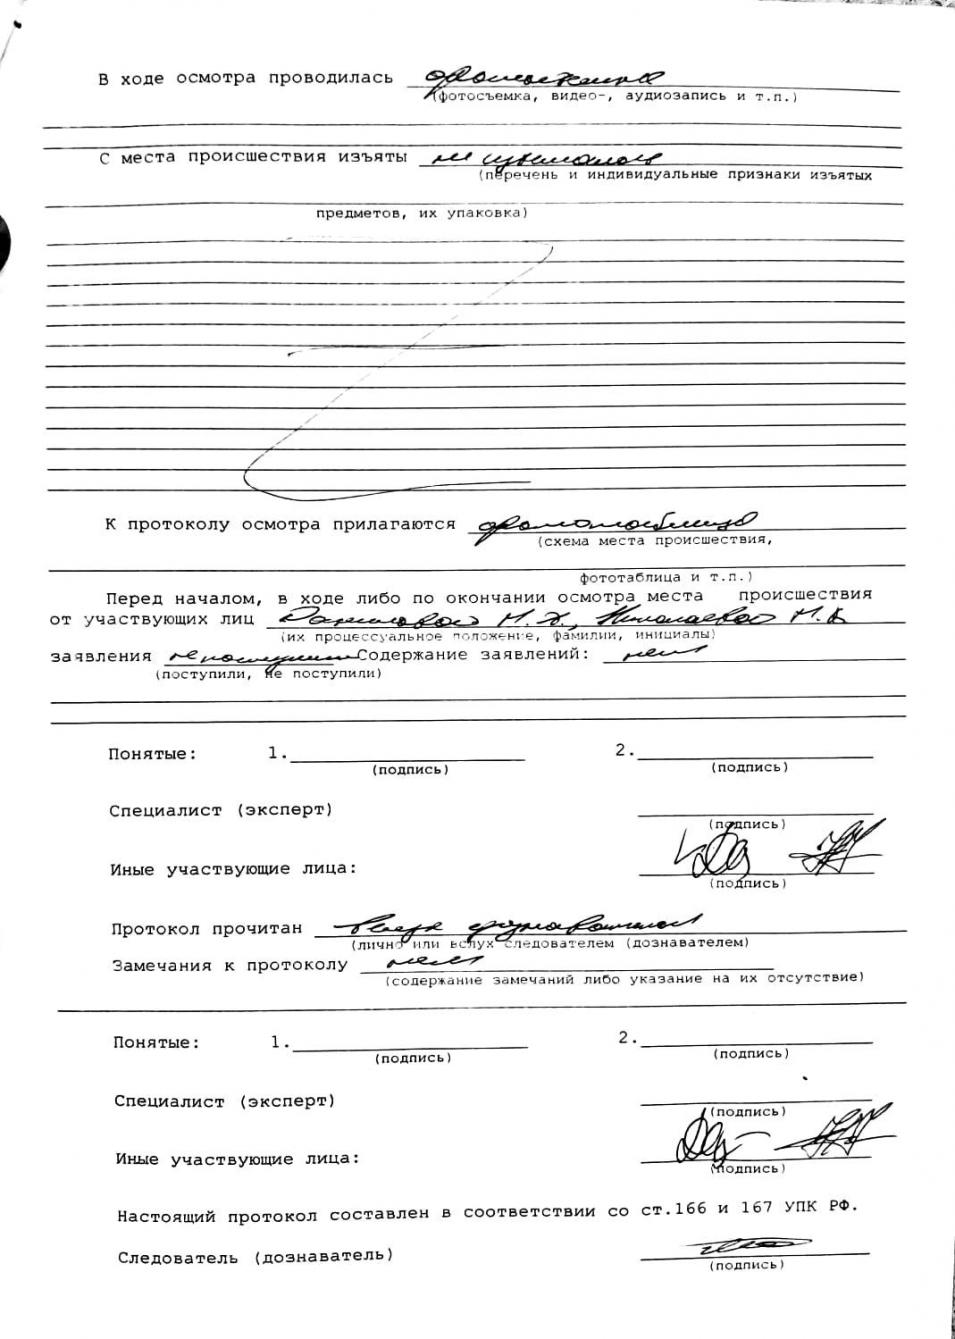 В ходе осмотра проводилась фотосъемка
(фотосъемка, видео-, аудиозапись и т.п.)
С места происшествия изъяты не изымалось
(перечень и индивидуальные признаки изъятых
предметов, их упаковка)
К протоколу осмотра прилагаются фототаблица
(схема места происшествия,
фототаблица и т.п.)
Перед началом, в ходе либо по окончании осмотра места происшествия
от участвующих лиц Николаевой
(их процессуальное положение, фамилии, инициалы)
заявления не поступили Содержание заявлений: нет
(поступили, не поступили)
Понятые: 1. 2.
(подпись) (подпись)
Специалист (эксперт)
(подпись)
Иные участвующие лица:
(подпись)
Протокол прочитан вслух дознавателем
(лично или вслух следователем (дознавателем)
Замечания к протоколу нет
(содержание замечаний либо указание на их отсутствие)
Понятые: 1. 2.
(подпись) (подпись)
Специалист (эксперт)
(подпись)
Иные участвующие лица:
(подпись)
Настоящий протокол составлен в соответствии со ст.166 и 167 УПК РФ.
Следователь (дознаватель)
(подпись)